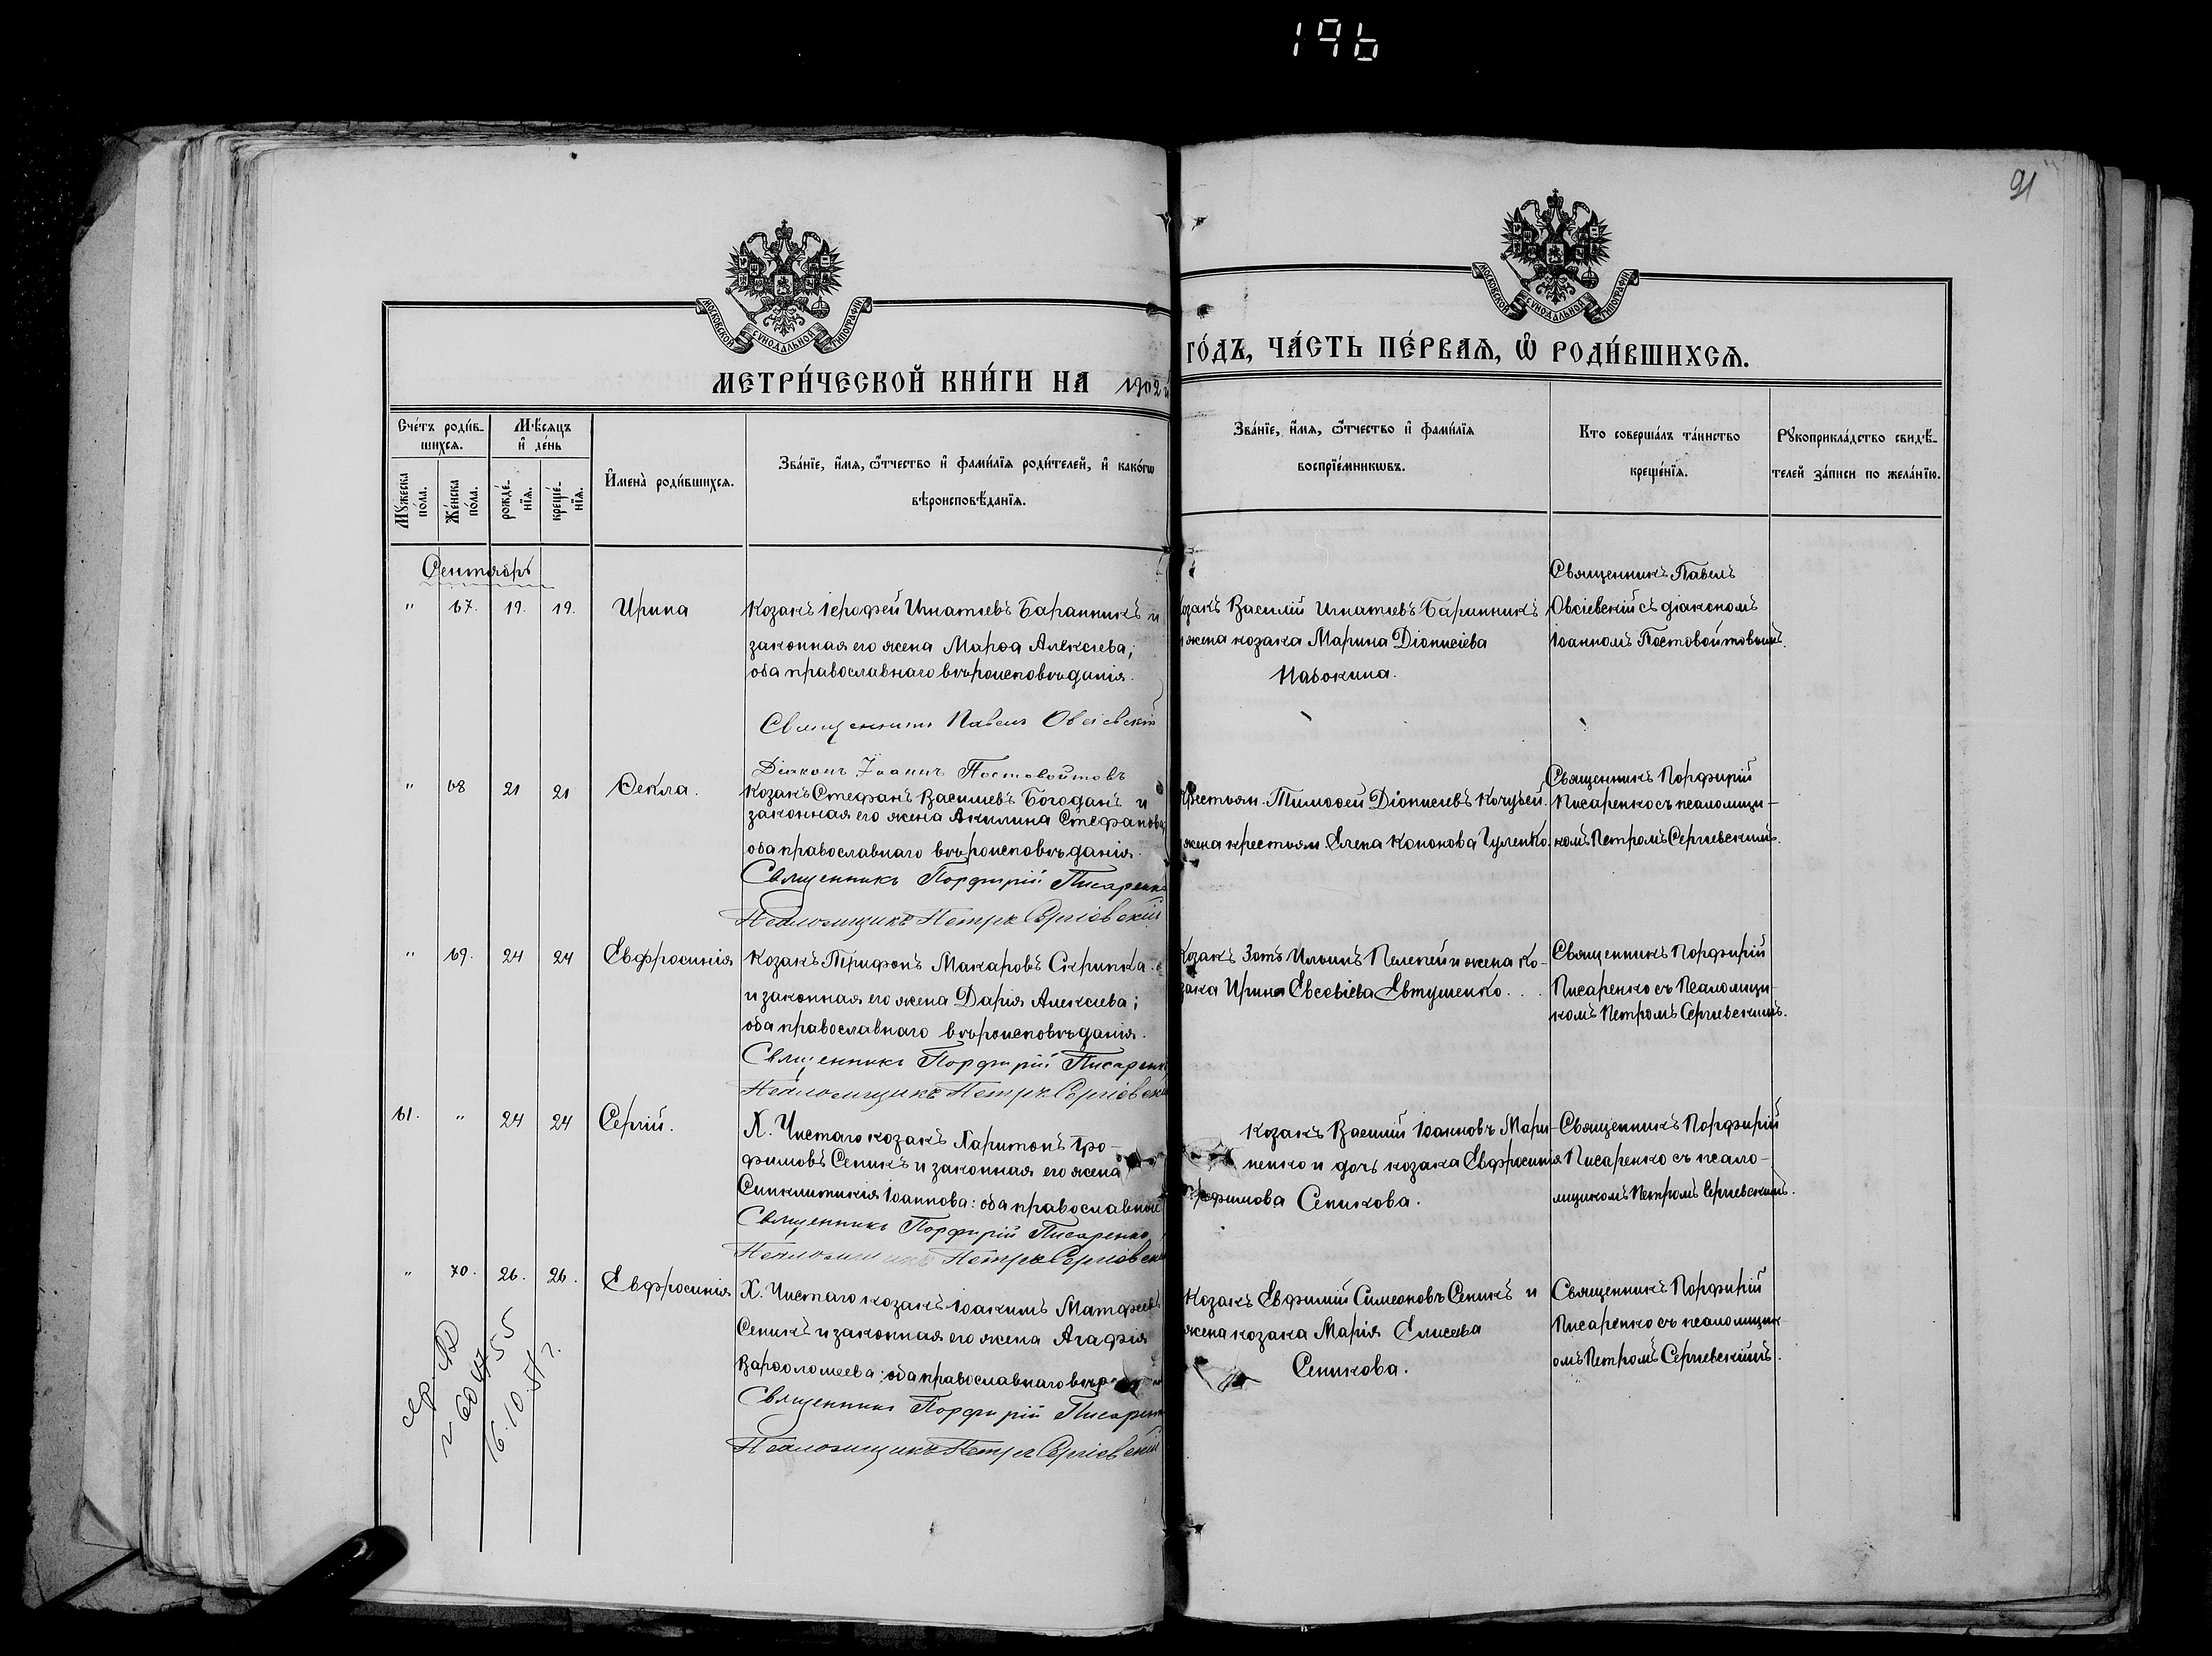 196
91
МОСКОВСКОЙ СѴНОДАЛЬНОЙ ТИПОГРАФІИ
МОСКОВСКОЙ СѴНОДАЛЬНОЙ ТИПОГРАФІИ
МЕТРИ́ЧЕСКОЙ КНИ́ГИ НА 1902й
ГО́ДЪ, ЧА́СТЬ ПЕ́РВАѦ, Ѽ РОДИ́ВШИХСѦ.
Сче́тъ роди́в-
шихсѧ.
Мꙋ́жеска по́ла.
Же́нска по́ла.
М́ѣсѧцъ
и҆ де́нь
рожде́-нїѧ.
креще́-нїѧ.
И҆мена̀ роди́вшихсѧ.
Зва́нїе, и҆́мѧ, ѻ҆́тчество и҆ фами́лїѧ роди́телей, и҆ како́гѡ
вѣроисповѣ́данїѧ.
Зва́нїе, и҆́мѧ, ѻ҆́тчество и҆ фами́лїѧ
воспрїе́мникѡвъ.
Кто соверша́лъ та́инство
креще́нїѧ.
Рꙋкоприкла́дство свидѣ́-
телей за́писи по жела́нїю.
Сентябрь
" 67. 19. 19. Ирина
Козакъ Іерофей Игнатіевъ Баранникъ и
законная его жена Марѳа Алексіева;
оба православнаго вѣроисповѣданія.
Священникъ Павелъ Овсіевскій
Діаконъ Іоаннъ Постовойтовъ
Козакъ Василій Игнатіевъ Баринникъ
и жена козака Марина Діонисіева
Набокина.
Священникъ Павелъ
Овсіевскій съ діакономъ
Іоанномъ Постовойтовымъ.
" 68 21 21 Ѳекла.
Козакъ Стефанъ Василіевъ Богоданъ и
законная его жена Акилина Стефанова
оба православнаго вѣроисповѣданія.
Священникъ Порфирій Писаренко
Псаломщикъ Петръ Сергіевскій
Крестьян. Тимоѳей Діонисіевъ Кочубей.
жена крестьян. Елена Кононова Гуленко.
Священникъ Порфирій
Писаренко съ псаломщи-
комъ Петромъ Сергіевскимъ.
" 69. 24 24 Евфросинія
Козакъ Трифонъ Макаровъ Скрипка
и законная его жена Дарія Алексіева;
оба православнаго вѣроисповѣданія.
Священникъ Порфирій Писаренко
Псаломщикъ Петръ Сергіевскій
Козакъ Зотъ Ильинъ Пелепей и жена ко-
зака Ирина Евсевіева Евтушенко. . .
Священникъ Порфирій
Писаренко съ Псаломщи-
комъ Петромъ Сергіевскимъ.
61. " 24 24 Сергій.
Х. Чистаго козакъ Харитонъ Тро-
фимовъ Сеникъ и законная его жена
Синклитикія Іоаннова: оба православной
Священникъ Порфирій Писаренко
Псаломщикъ Петръ Сергіевскій
Козакъ Василій Іоанновъ Мари-
ненко и дочь козака Евфросинія
Трофимова Сеникова.
Священникъ Порфирій
Писаренко съ псало-
мщикомъ Петромъ Сергіевскимъ.
" 70. 26. 26. Евфросинія
Х. Чистаго козакъ Іоакимъ Матфеевъ
Сеникъ и законная его жена Агафія
Варѳоломеева; оба православнаго вѣр
Священникъ Порфирій Писаренко
Псаломщикъ Петръ Сергіевскій
Козакъ Евфимій Симеоновъ Сеникъ и
жена козака Марія Елисеева
Сеникова.
Священникъ Порфирій
Писаренко съ псаломщик-
омъ Петромъ Сергіевскимъ.
16.10.